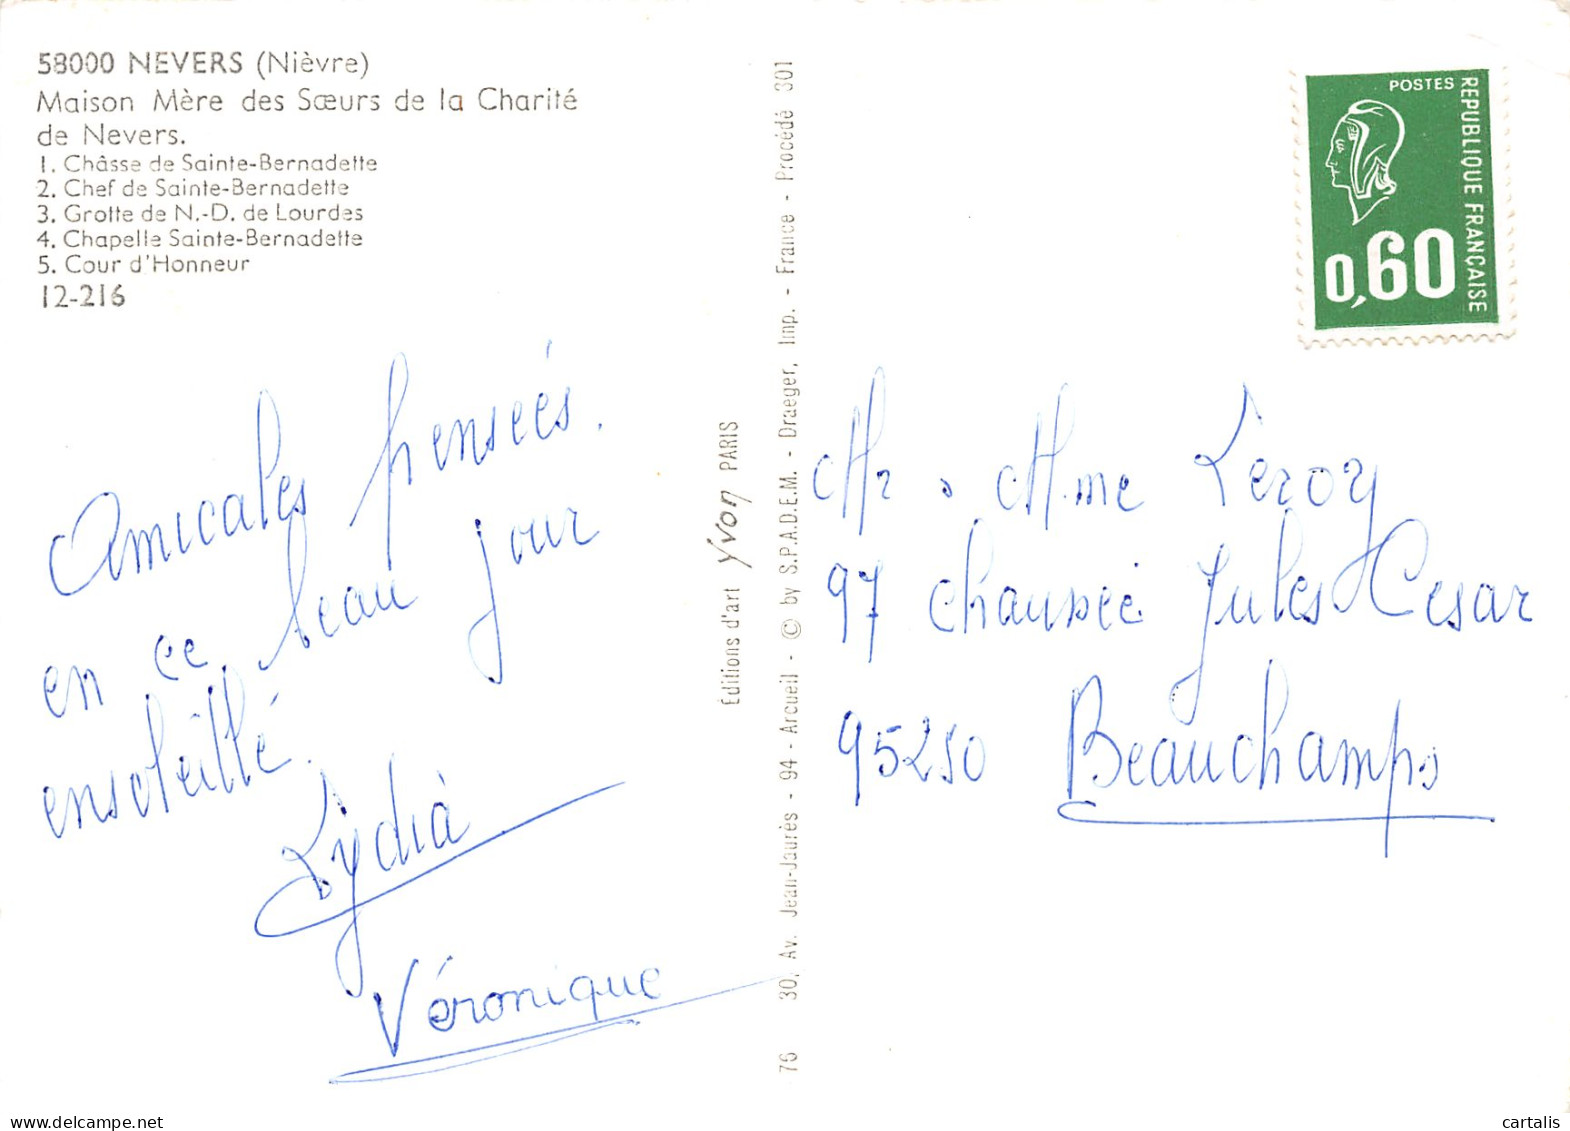 58000 NEVERS (Nièvre)
Maison Mère des Sœurs de la Charité
de Nevers.
1. Châsse de Sainte-Bernadette
2. Chef de Sainte-Bernadette
3. Grotte de N.-D. de Lourdes
4. Chapelle Sainte-Bernadette
5. Cour d'Honneur
12-216
Amicales pensées.
en ce beau jour
ensoleillé.
Lydia
Véronique
Éditions d'art Yvon PARIS
76 30, Av. Jean-Jaurès - 94 - Arcueil - © by S.P.A.D.E.M. - Draeger, Imp. - France - Procédé 301
POSTES
REPUBLIQUE FRANÇAISE
0,60
Mr. Mme Leroy
97 chaussée Jules Cesar
95250 Beauchamps
cartalis